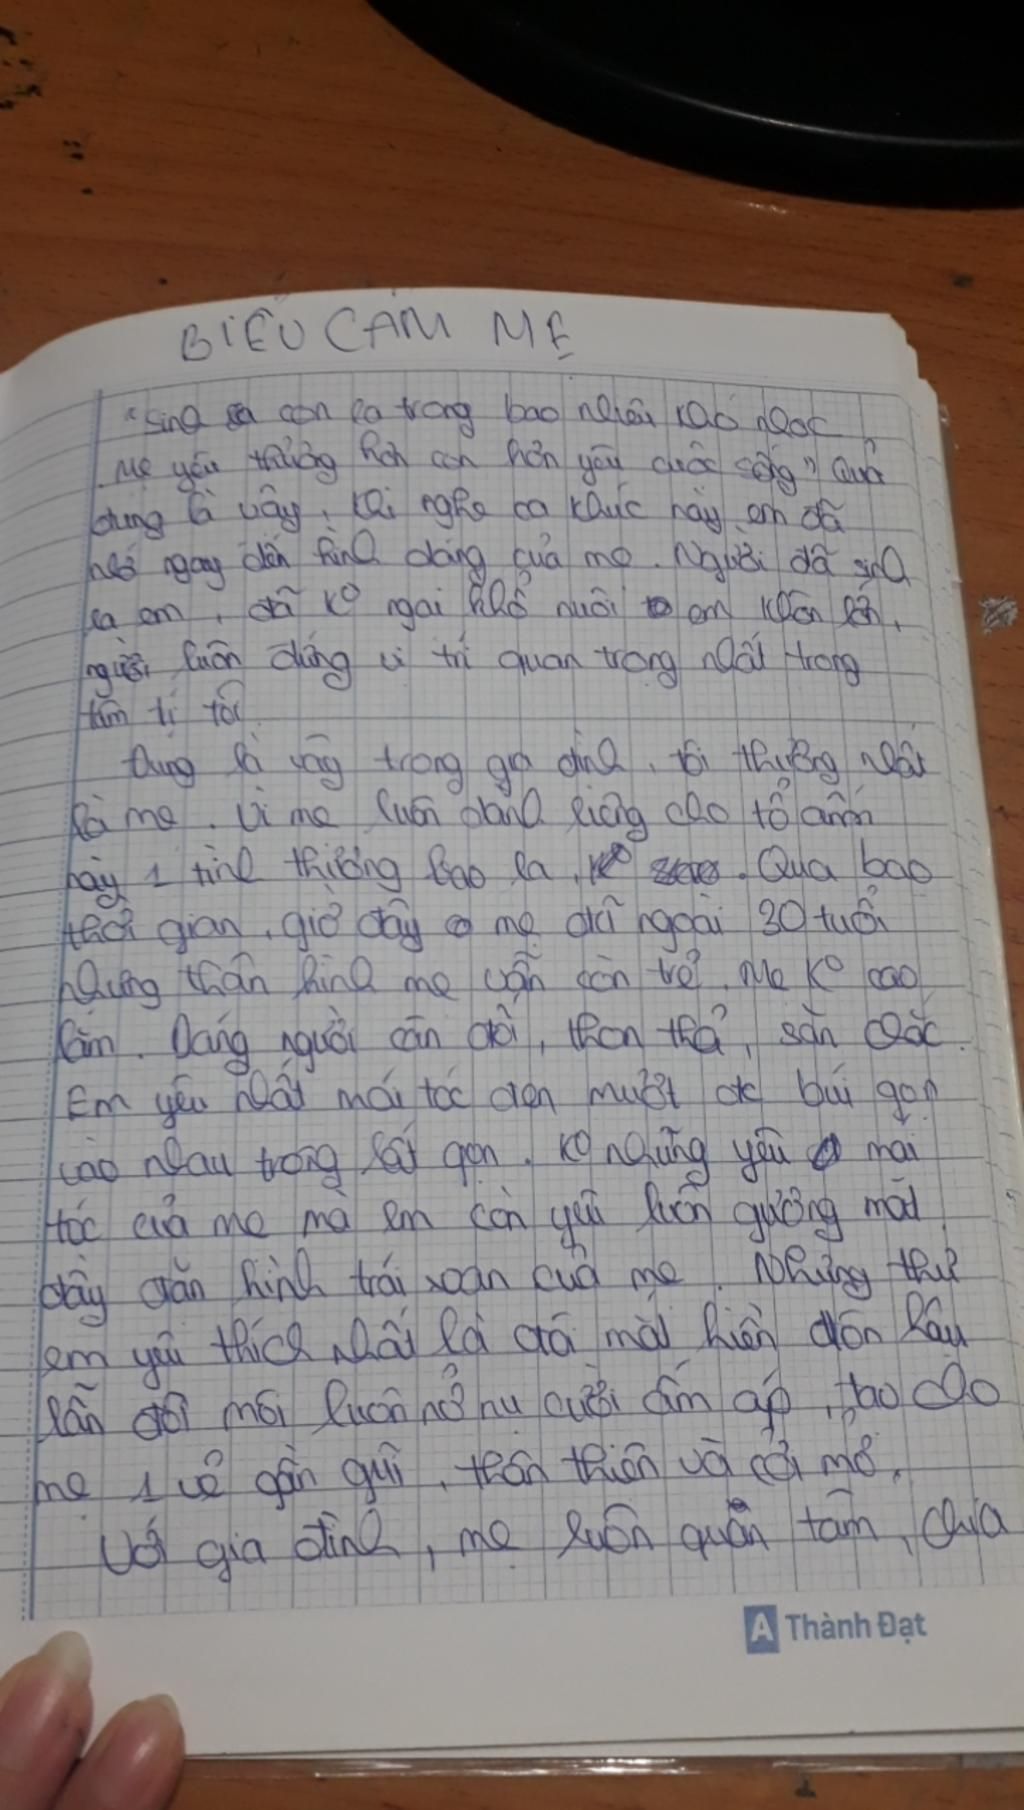 BIỂU CẢM MẸ
"Sinh ra con ra trong bao nhiêu khó nhọc
Mẹ yêu thương hơn con hơn yêu cuộc sống" Quả
đúng là vậy, khi nghe ca khúc này em đã
nhớ ngay đến hình dáng của mẹ. Người đã sinh
ra em, đã k° ngại khổ nuôi em khôn lớn,
người luôn đứng vị trí quan trọng nhất trong
tâm trí tôi
Đúng là vậy trong gia đình, tôi thương nhất
là mẹ. Vì mẹ luôn dành riêng cho tổ ấm
này 1 tình thương bao la. Qua bao
thời gian, giờ đây mẹ đã ngoài 30 tuổi
nhưng thân hình mẹ vẫn còn trẻ. Mẹ k° cao
lắm. Dáng người cân đối, thon thả, săn chắc.
Em yêu nhất mái tóc đen mượt đc búi gọn
vào nhau trông rất gọn. k° những yêu mái
tóc của mẹ mà em còn yêu luôn gương mặt
đầy đặn hình trái xoan của mẹ. Những thứ
em yêu thích nhất là đôi mắt hiền đôn hậu
lẫn đôi môi luôn nở nụ cười ấm áp, tạo cho
mẹ 1 vẻ gần gũi, thân thiện và cởi mở.
Với gia đình, mẹ luôn quan tâm, chia
A Thành Đạt